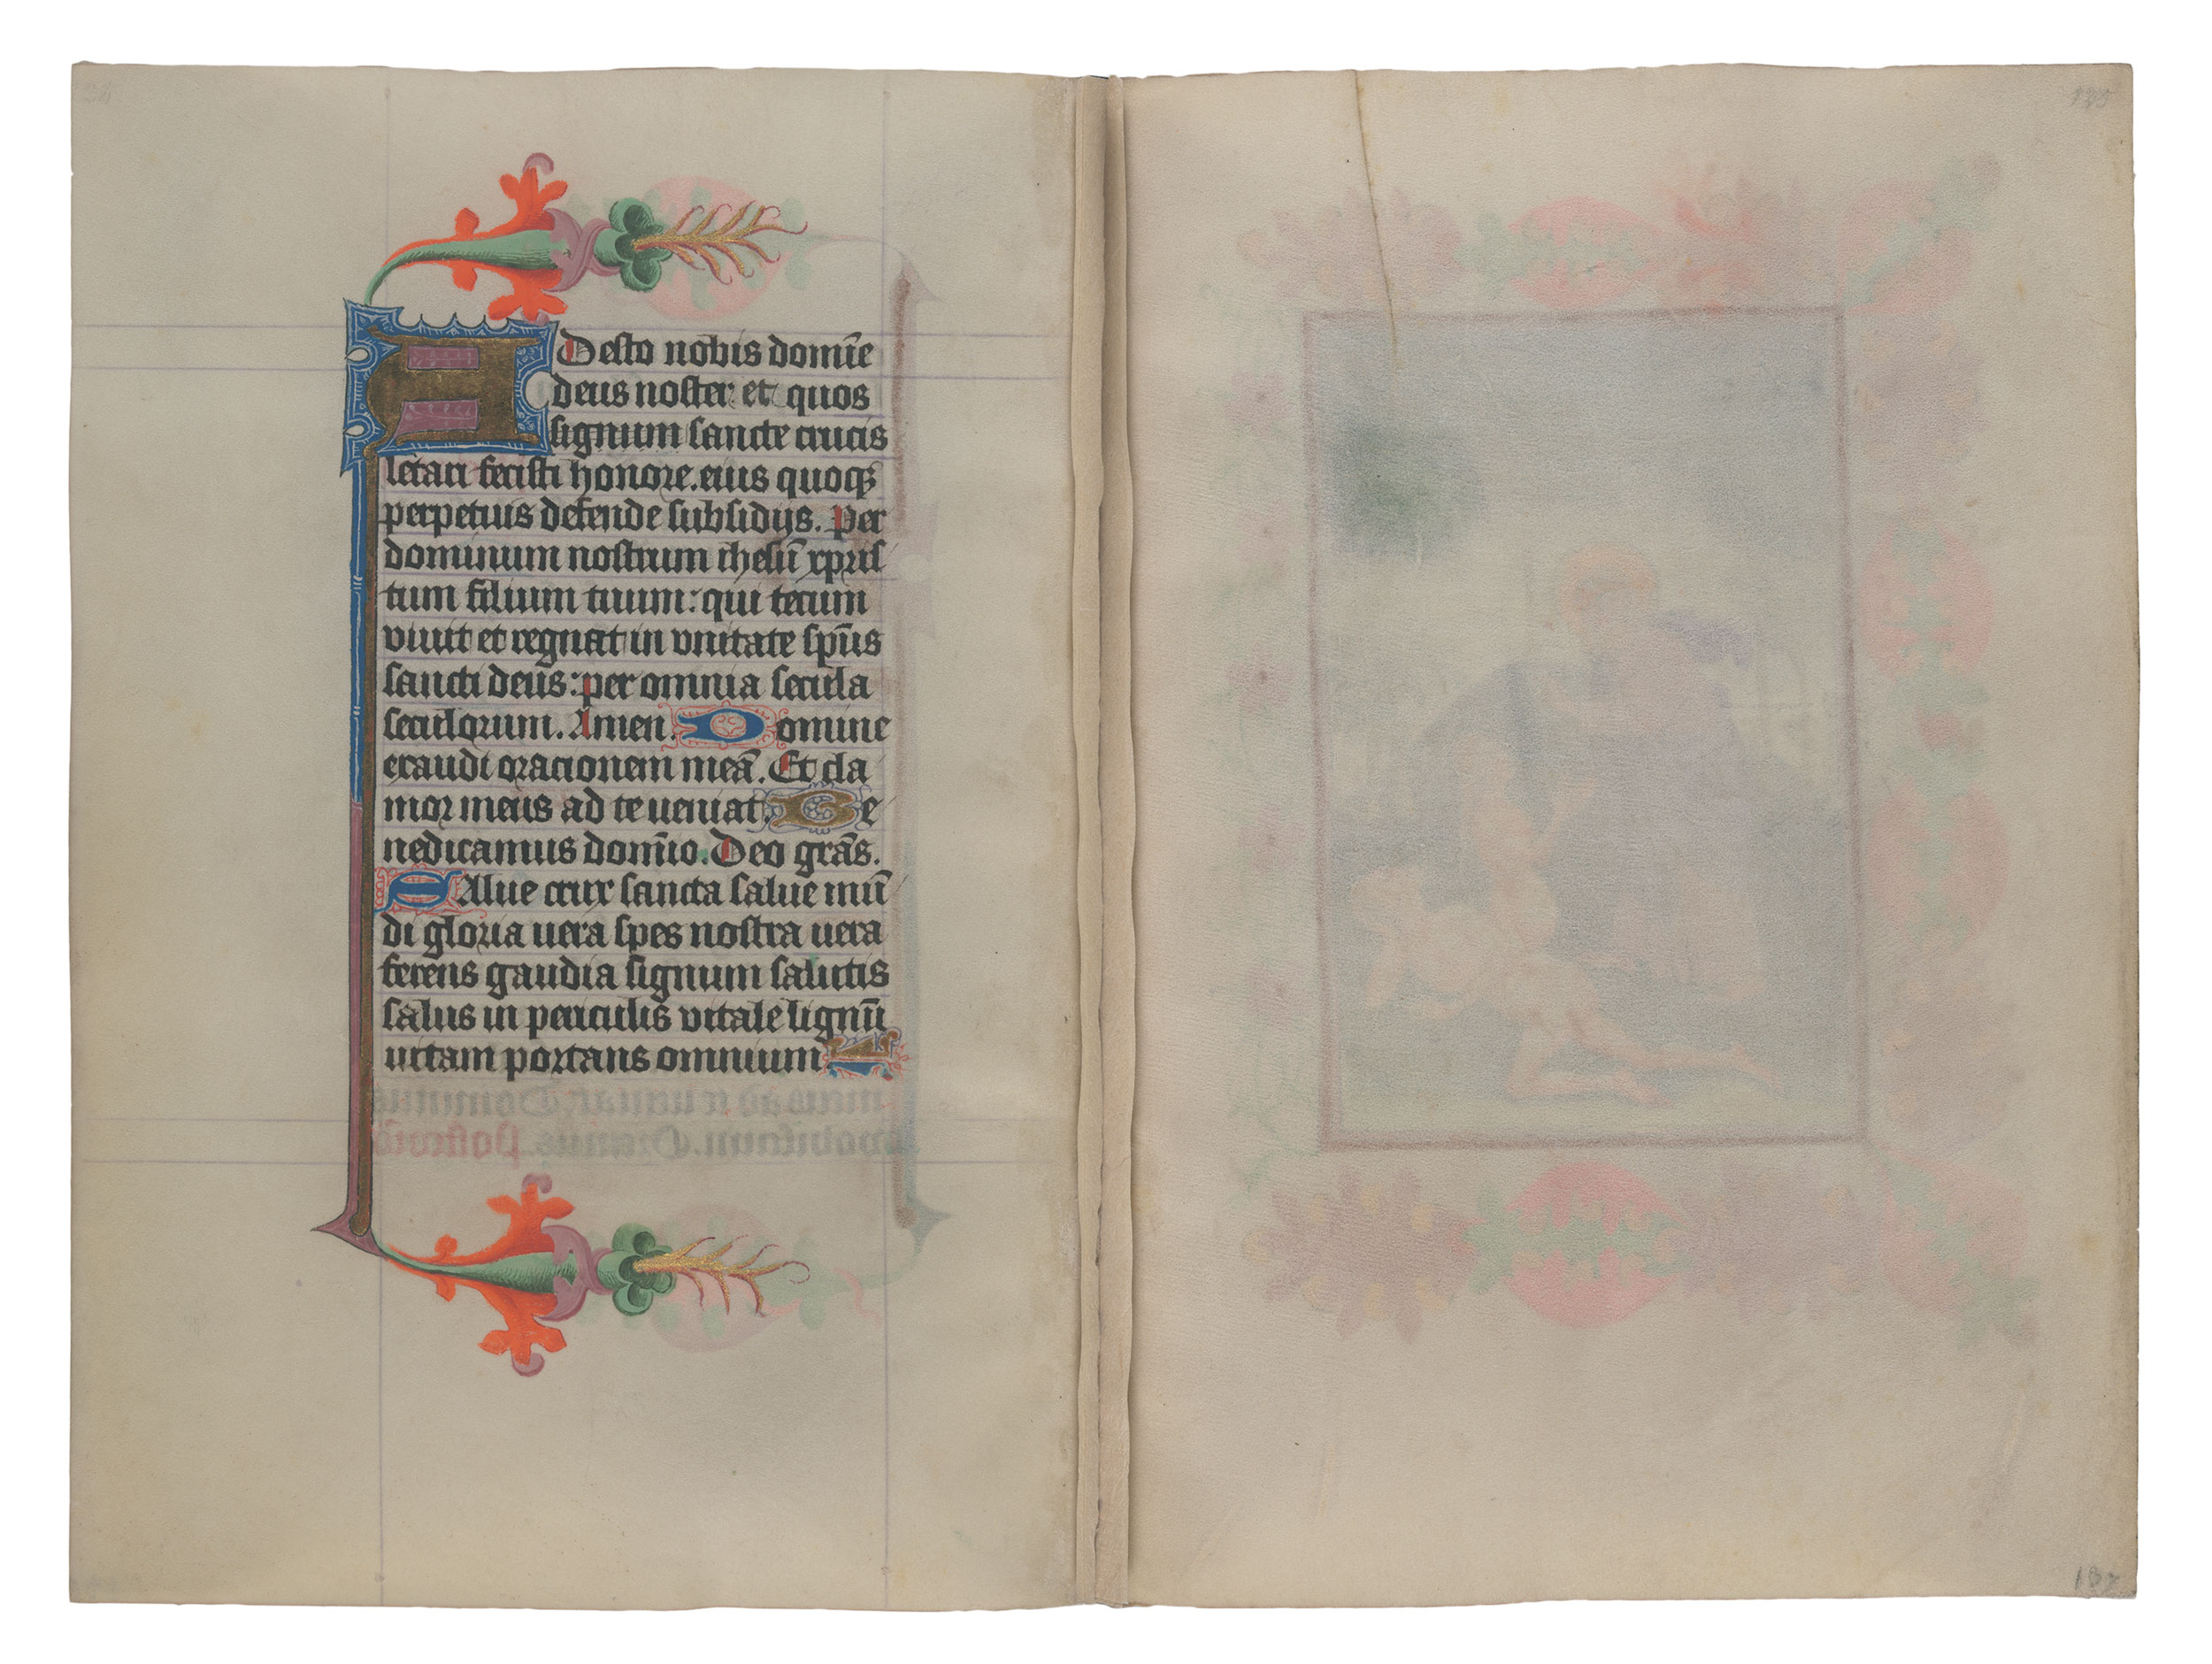 ADesto nobis domīe
deus noster et quos
signum sancte crucis
letari fecisti honore. eius quoqꝫ
perpetuis defende subsidijs. Per
dominum nostrum ihesū xpris
tum filium tuum: qui tecum
viuit et regnat in vnitate spūs
sancti deus: per omnia secula
seculorum. Amen. Domine
exaudi oracionem meā. Et cla
mor meus ad te ueniat. Be
nedicamus domīo. Deo grās.
SAlue crux sancta salue mū
di gloria uera spes nostra uera
ferens gaudia signum salutis
salus in periculis vitale lignū
uitam portans omnium
125
137